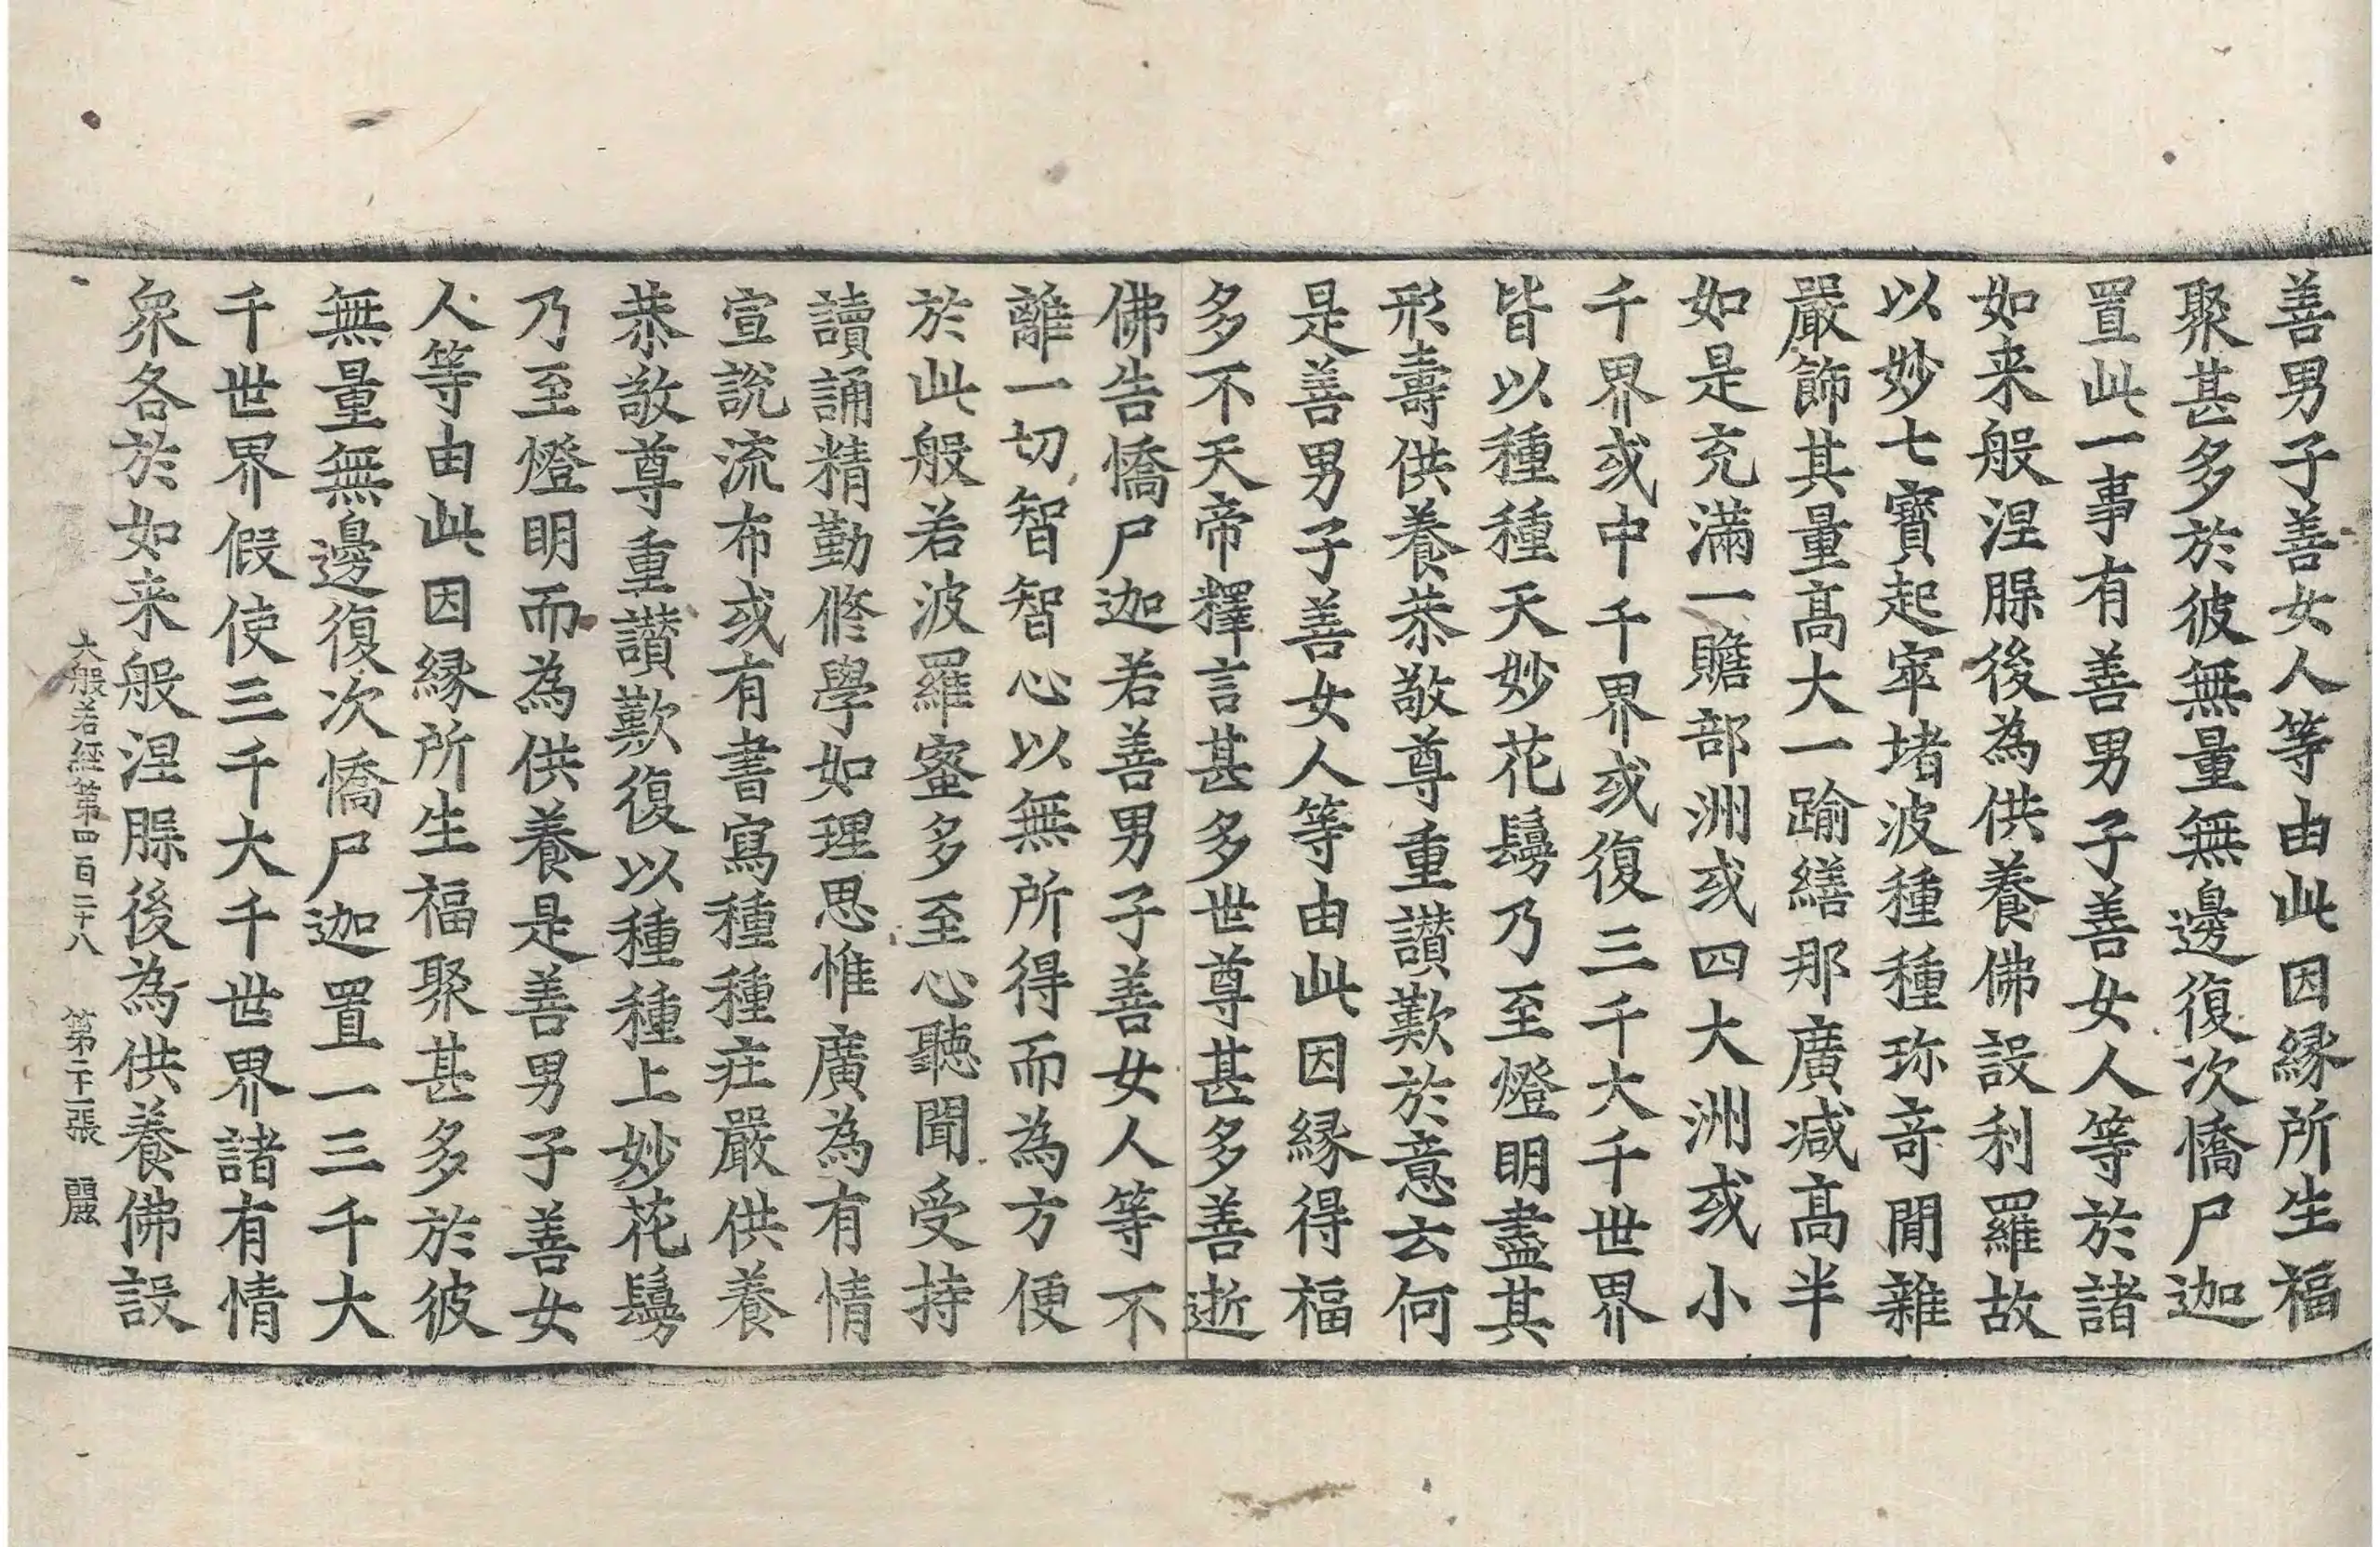 善男子善女人等由此因縁所生福
聚甚多於彼無量無邊復次憍尸迦
置此一事有善男子善女人等於諸
如来般涅脲後為供養佛設利羅故
以妙七寳起窣堵波種種珎竒閒雜
嚴飾其量髙大一踰繕那廣减髙半
如是充滿一贍部洲或四大洲或小
千界或中千界或復三千大千世界
皆以種種天妙花鬘乃至燈明盡其
形壽供養恭敬尊重讃歎於意云何
是善男子善女人等由此因縁得福
多不天帝釋言甚多世尊甚多善逝
佛告憍尸迦若善男子善女人等不
離一切智智心以無所得而為方便
於此般若波羅蜜多至心聽聞受持
讀誦精勤修學如理思惟廣為有情
宣説流布或有書寫種種莊嚴供養
恭敬尊重讃歎復以種種上妙花鬘
乃至燈明而為供養是善男子善女
人等由此因縁所生福聚甚多於彼
無量無邊復次憍尸迦置一三千大
千世界假使三千大千世界諸有情
衆各於如来般涅脲後為供養佛設
大般若經第四百二十八 第二十一張 麗